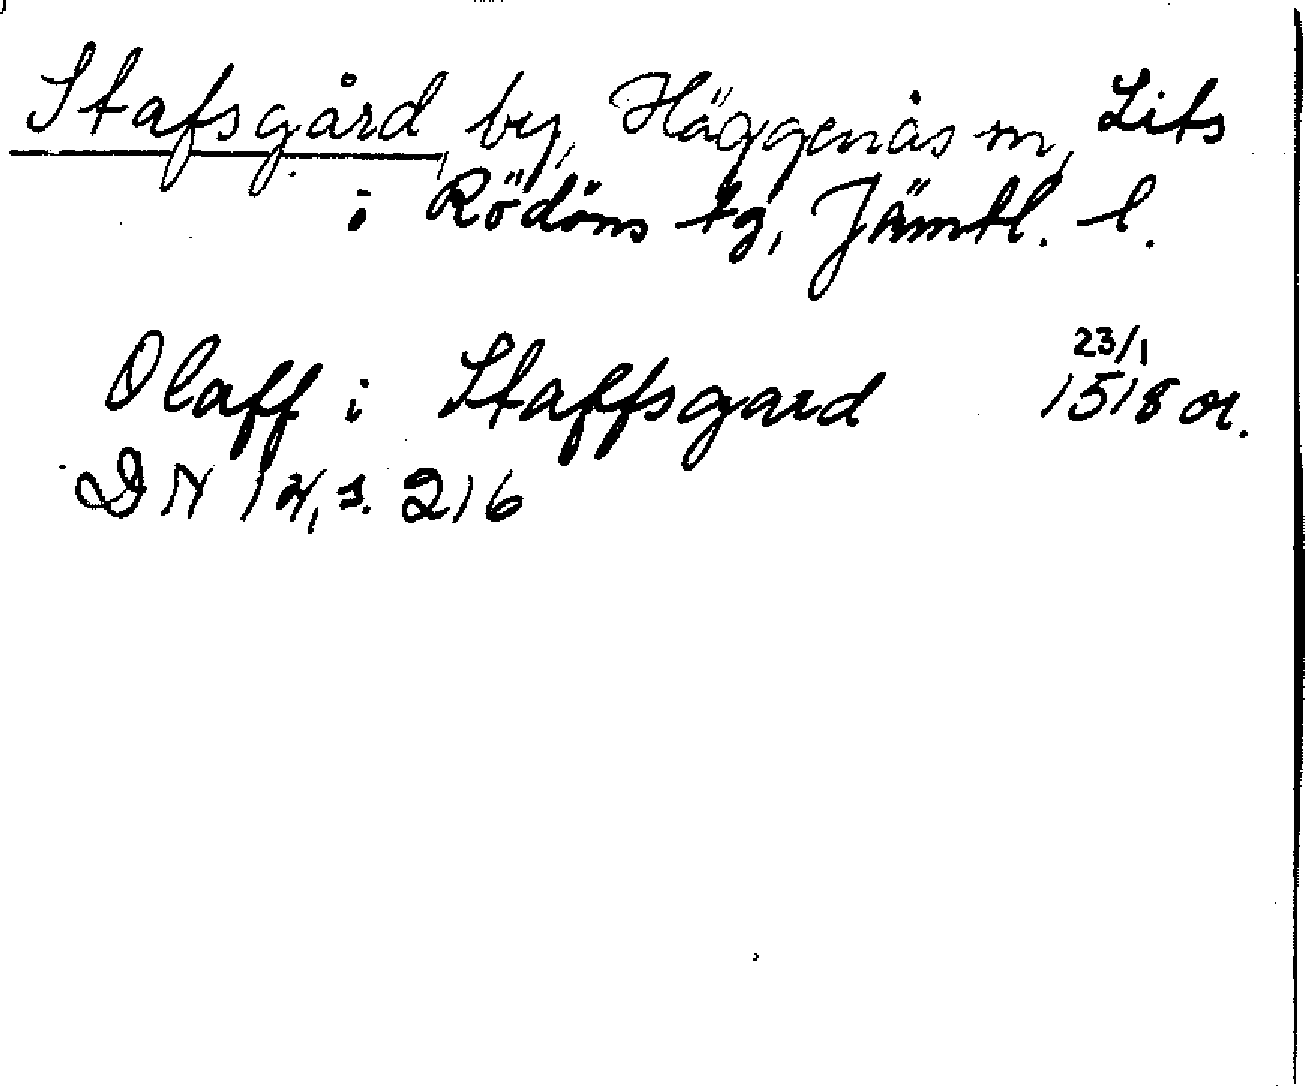 Stafsgård, by, Häggenås sn, Lits
i Rödöns tg, Jämtl. l.
Olaff i Staffsgard 23/1 1518 or.
DN 14, s. 216